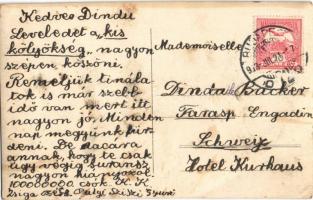 Kedves Dindu
Leveledet a kis
kölyökség nagyon
szépen köszöni.
Reméljük tinálla
tok is már szebb
idő van mert itt
nagyon jó. Minden
nap megyünk für
deni. De dacára
annak, hogy te csak
úgy végig suransz
nagyon hiányozol.
100000000 csók. K. K.
Mademoiselle
Dinda Backer
Farasp Engadin
Schweiz
Hotel Kurhaus